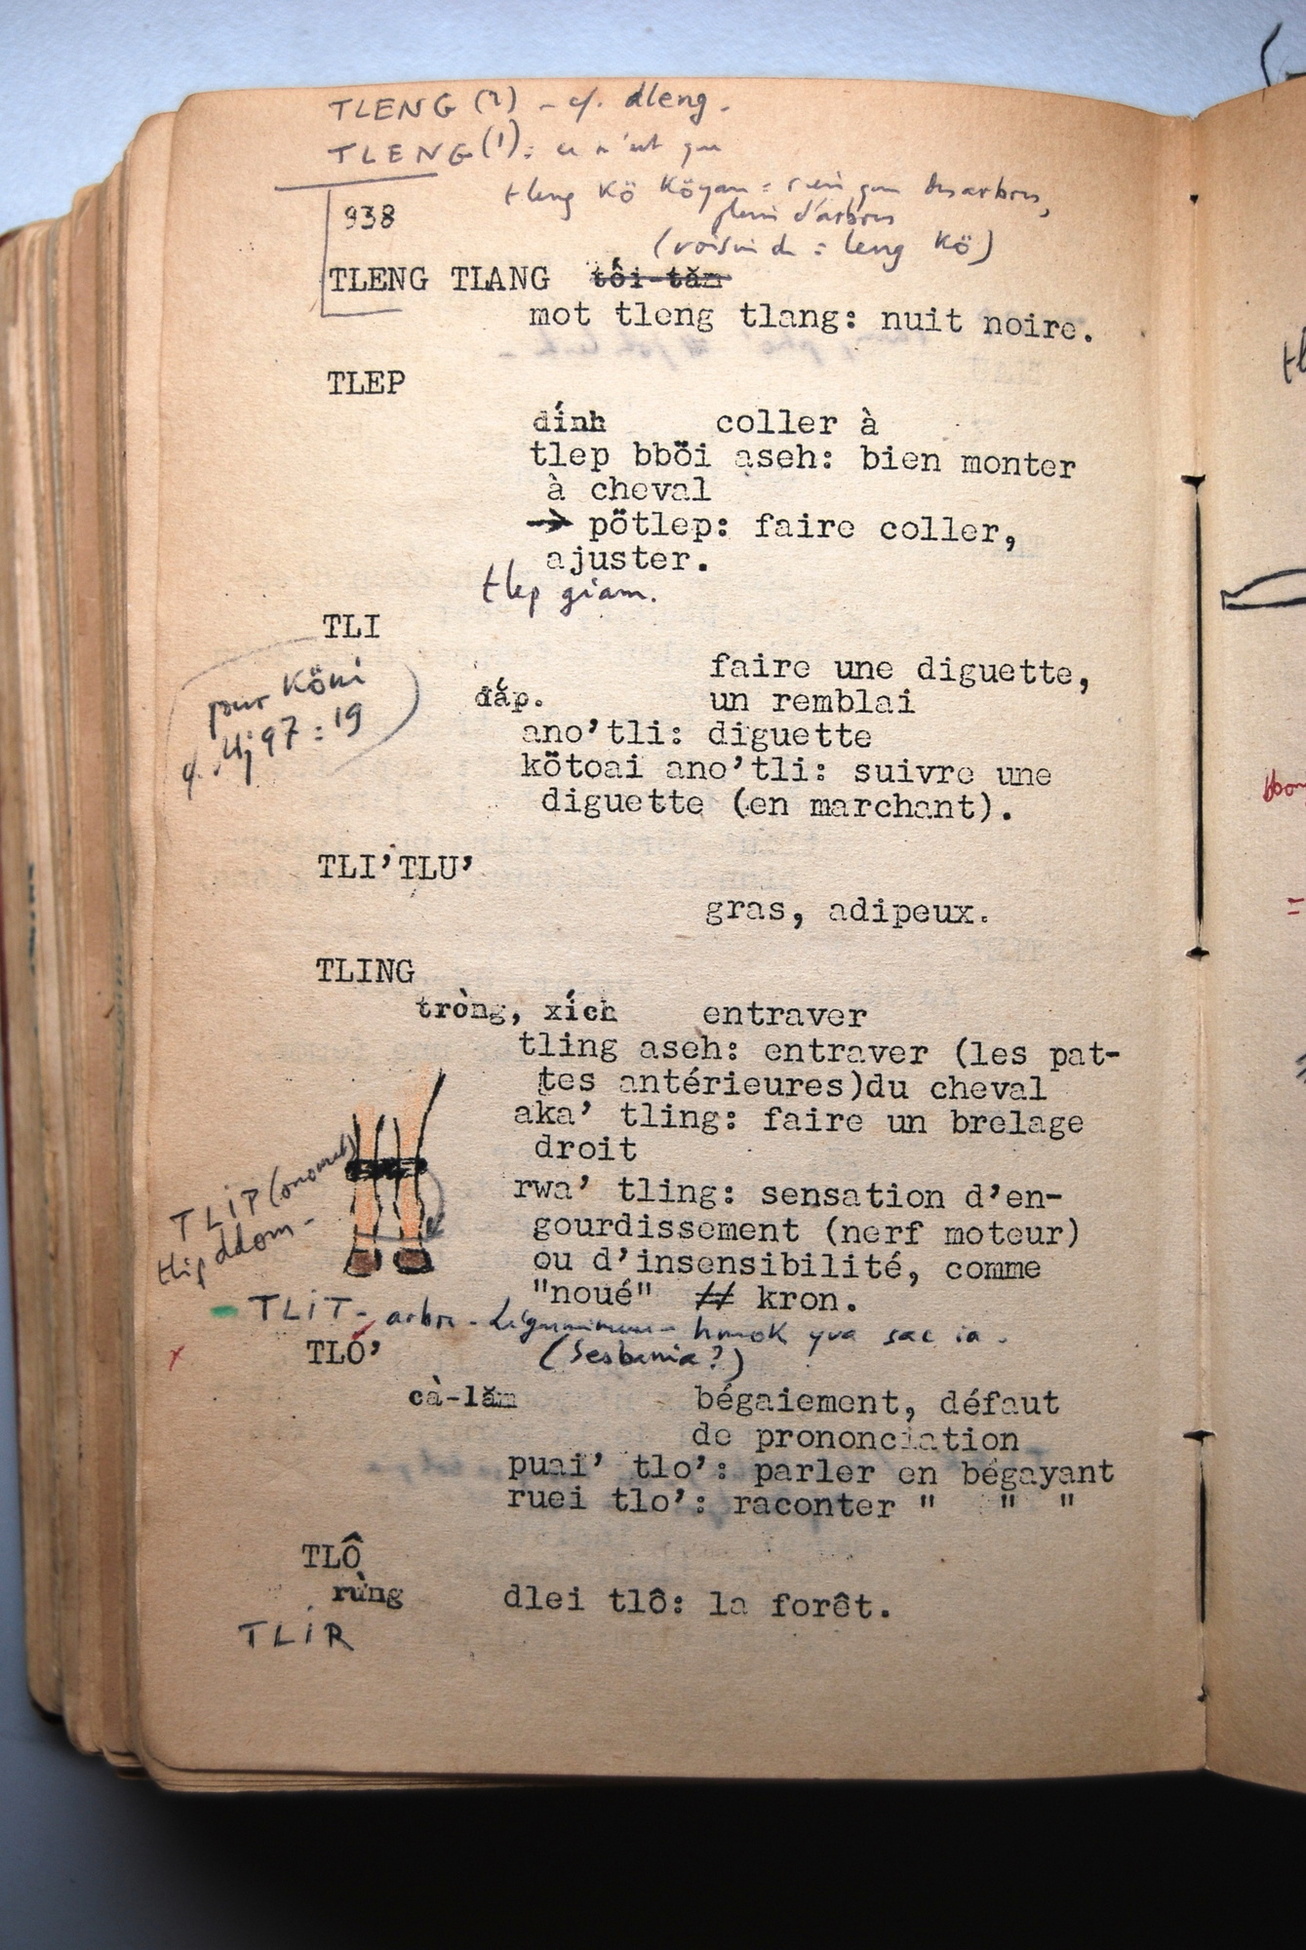 TLENG (2) - cf. dleng.
TLENG (1): ce n'est que
tleng kö köyau = rien que des arbres,
plein d'arbres
(voisin de = leng kö)
938
TLENG TLANG tối-tăm
mot tleng tlang: nuit noire.
TLEP
dính coller à
tlep bbŏi aseh: bien monter
à cheval
→ pötlep: faire coller,
ajuster.
tlep giam.
TLI
faire une diguette,
đắp. un remblai
pour Köni
cf. 97 = 19
ano'tli: diguette
kötoai ano'tli: suivre une
diguette (en marchant).
TLI'TLU'
gras, adipeux.
TLING
tròng, xích entraver
tling aseh: entraver (les pat-
tes antérieures)du cheval
aka' tling: faire un brelage
droit
rwa' tling: sensation d'en-
gourdissement (nerf moteur)
ou d'insensibilité, comme
"noué" # kron.
TLIP (onomat)
tlip ddom -
TLIT - arbre - légumineuse - hmok yua sac ia.
(Sesbania?)
TLO'
cà-lăm bégaiement, défaut
de prononciation
puai' tlo': parler en bégayant
ruei tlo': raconter " " "
TLÔ
rừng dlei tlô: la forêt.
TLIR